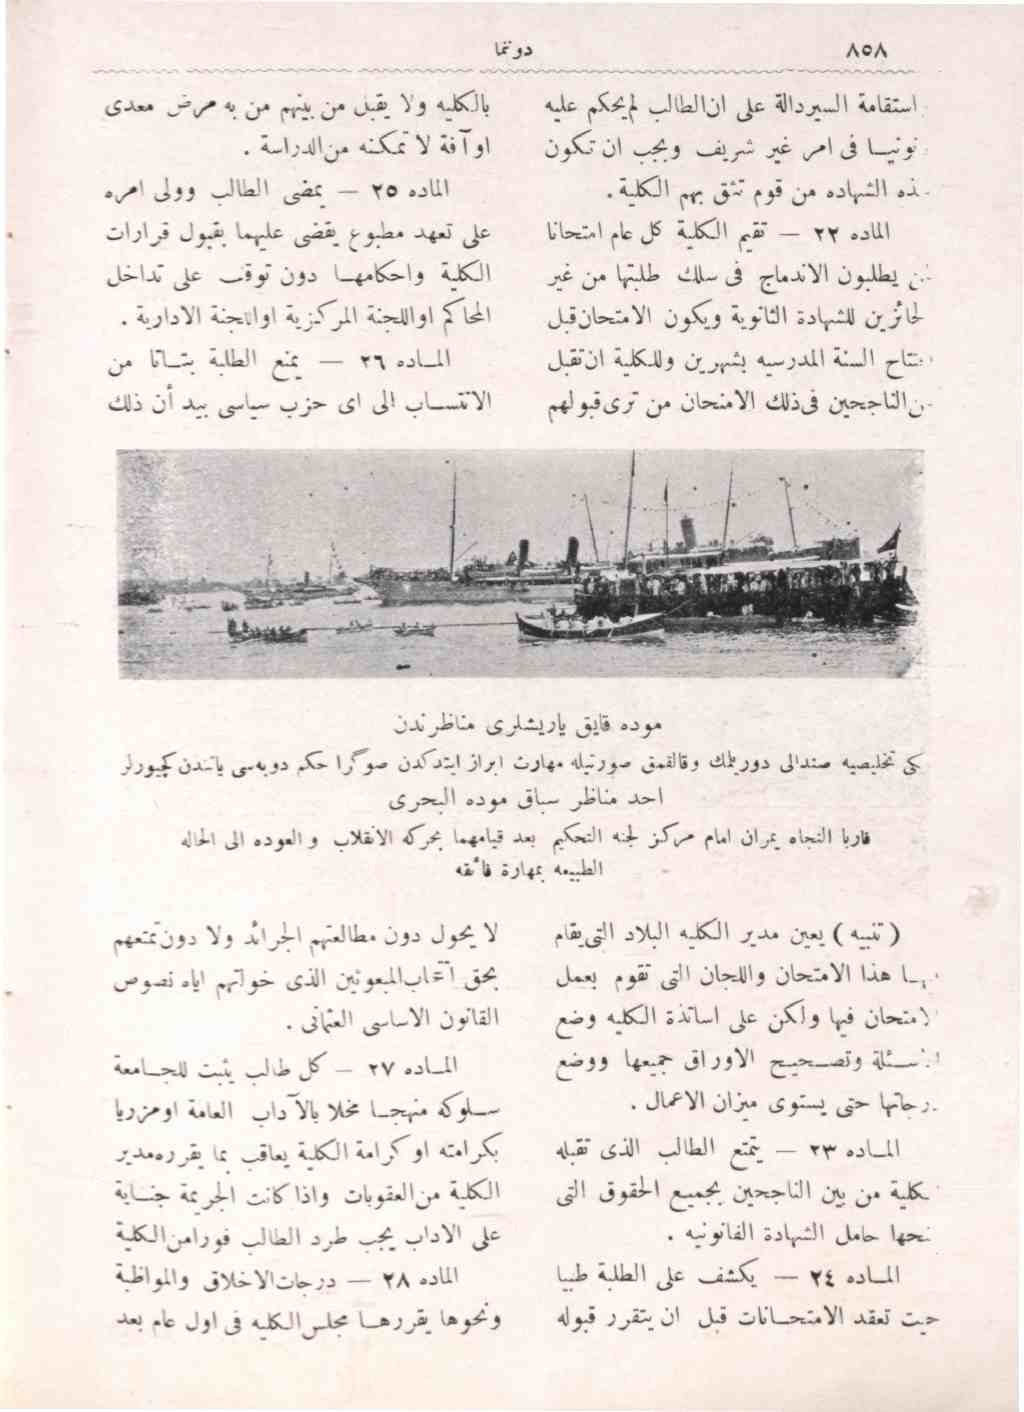 ٨٥٨
دوننما
استقامة السيرداله على ان الطالب لم يحكم عليه
نونيـا فى امر غير شريف ويجب ان تكون
ـذه الشهاده من قوم تثق بهم الكلية .
الماده ٢٢ — تقيم الكلية كل عام امتحانا
ـن يطلبون الاندماج فى سلك طلبتها من غير
لحائزين للشهادة الثانوية ويكون الامتحان قبل
ـتتاح السنة المدرسيه بشهرين وللكلية ان تقبل
ـن الناجحين فى ذلك الامتحان من ترى قبولهم
بالكليه ولا يقبل من بينهم من به مرض معدى
او آفة لا تمكنه من الدراسة .
الماده ٢٥ — يمضى الطالب وولى امره
على تعهد مطبوع يقضى عليهما بقبول قرارات
الكلية واحكامهـا دون توقف على تداخل
المحاكم او اللجنة المركزية او اللجنة الادارية .
المـاده ٢٦ — يمنع الطلبة بتـاتا من
الانتسـاب الى اى حزب سياسى بيد أن ذلك
موده قايق ياريشلرى مناظرندن
ـكى تخليصيه صندالى دوريلمك وقالقمق صورتيله مهارت ابراز ايتدكدن صوكرا حكم دوبه‌سى يانندن كچيورلر
احد مناظر سباق موده البحرى
قاربا النجاه يمران امام مركز لجنه التحكيم بعد قيامهما بحركه الانقلاب و العوده الى الحاله
الطبيعه بمهارة فائقه
( تنبيه ) يعين مدير الكليه البلاد التى يقام
ـهـا هذا الامتحان واللجان التى تقوم بعمل
لامتحان فيها ولكن على اساتذة الكليه وضع
لاسـئلة وتصـحيح الاوراق جميعها ووضع
ـرجاتها حتى يستوى ميزان الاعمال .
المـاده ٢٣ — يتمتع الطالب الذى تقبله
ـكلية من بين الناجحين بجميع الحقوق التى
ـنحها حامل الشهادة القانونيه .
المـاده ٢٤ — يكشف على الطلبة طبيا
حيث تعقد الامتحـانات قبل ان يتقرر قبوله
لا يحول دون مطالعتهم الجرائد ولا دون تمتعهم
بحق انتخاب المبعوثين الذى خولتهم اياه نصوص
القانون الاساسى العثمانى .
المـاده ٢٧ — كل طالب يثبت للجـامعة
سـلوكه منهجـا مخلا بالآداب العامة او مزريا
بكرامته او كرامة الكلية يعاقب بما يقرره مدير
الكلية من العقوبات واذا كانت الجريمة جنـاية
على الاداب يجب طرد الطالب فورا من الكلية
الماده ٢٨ — درجات الاخلاق والمواظبة
ونحوها يقررهـا مجلس الكليه فى اول عام بعد